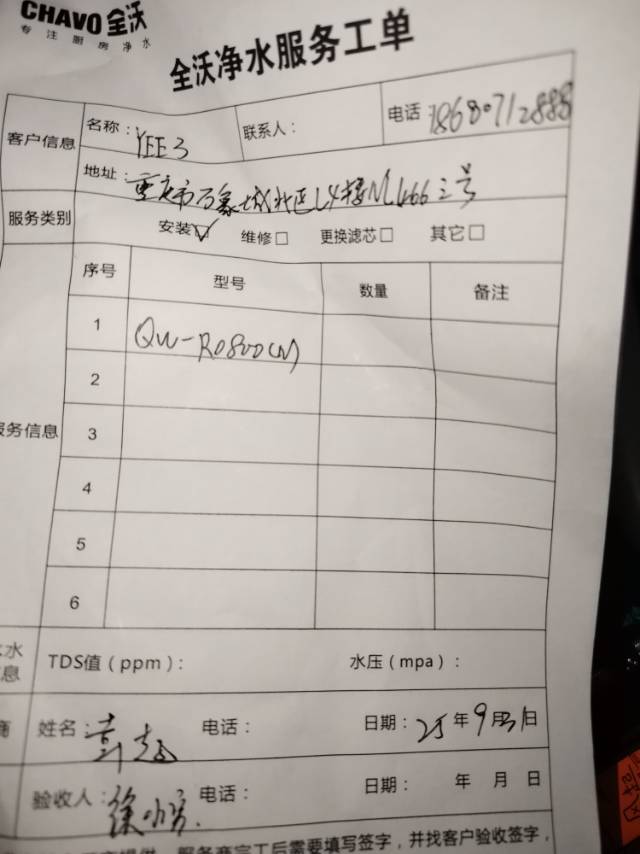 CHAVO 全沃
专注厨房净水
全沃净水服务工单
客户信息 名称：YEE3 联系人： 电话 18680712888
地址：重庆市万象城北区L4楼N466三号
服务类别 安装☑ 维修□ 更换滤芯□ 其它□
序号 型号 数量 备注
1 QW-RO800CM
2
服务信息 3
4
5
6
水
信息 TDS值（ppm）： 水压（mpa）：
商 姓名： 电话： 日期：25年9月 日
验收人：徐 电话： 日期： 年 月 日
服务商完工后需要填写签字，并找客户验收签字，